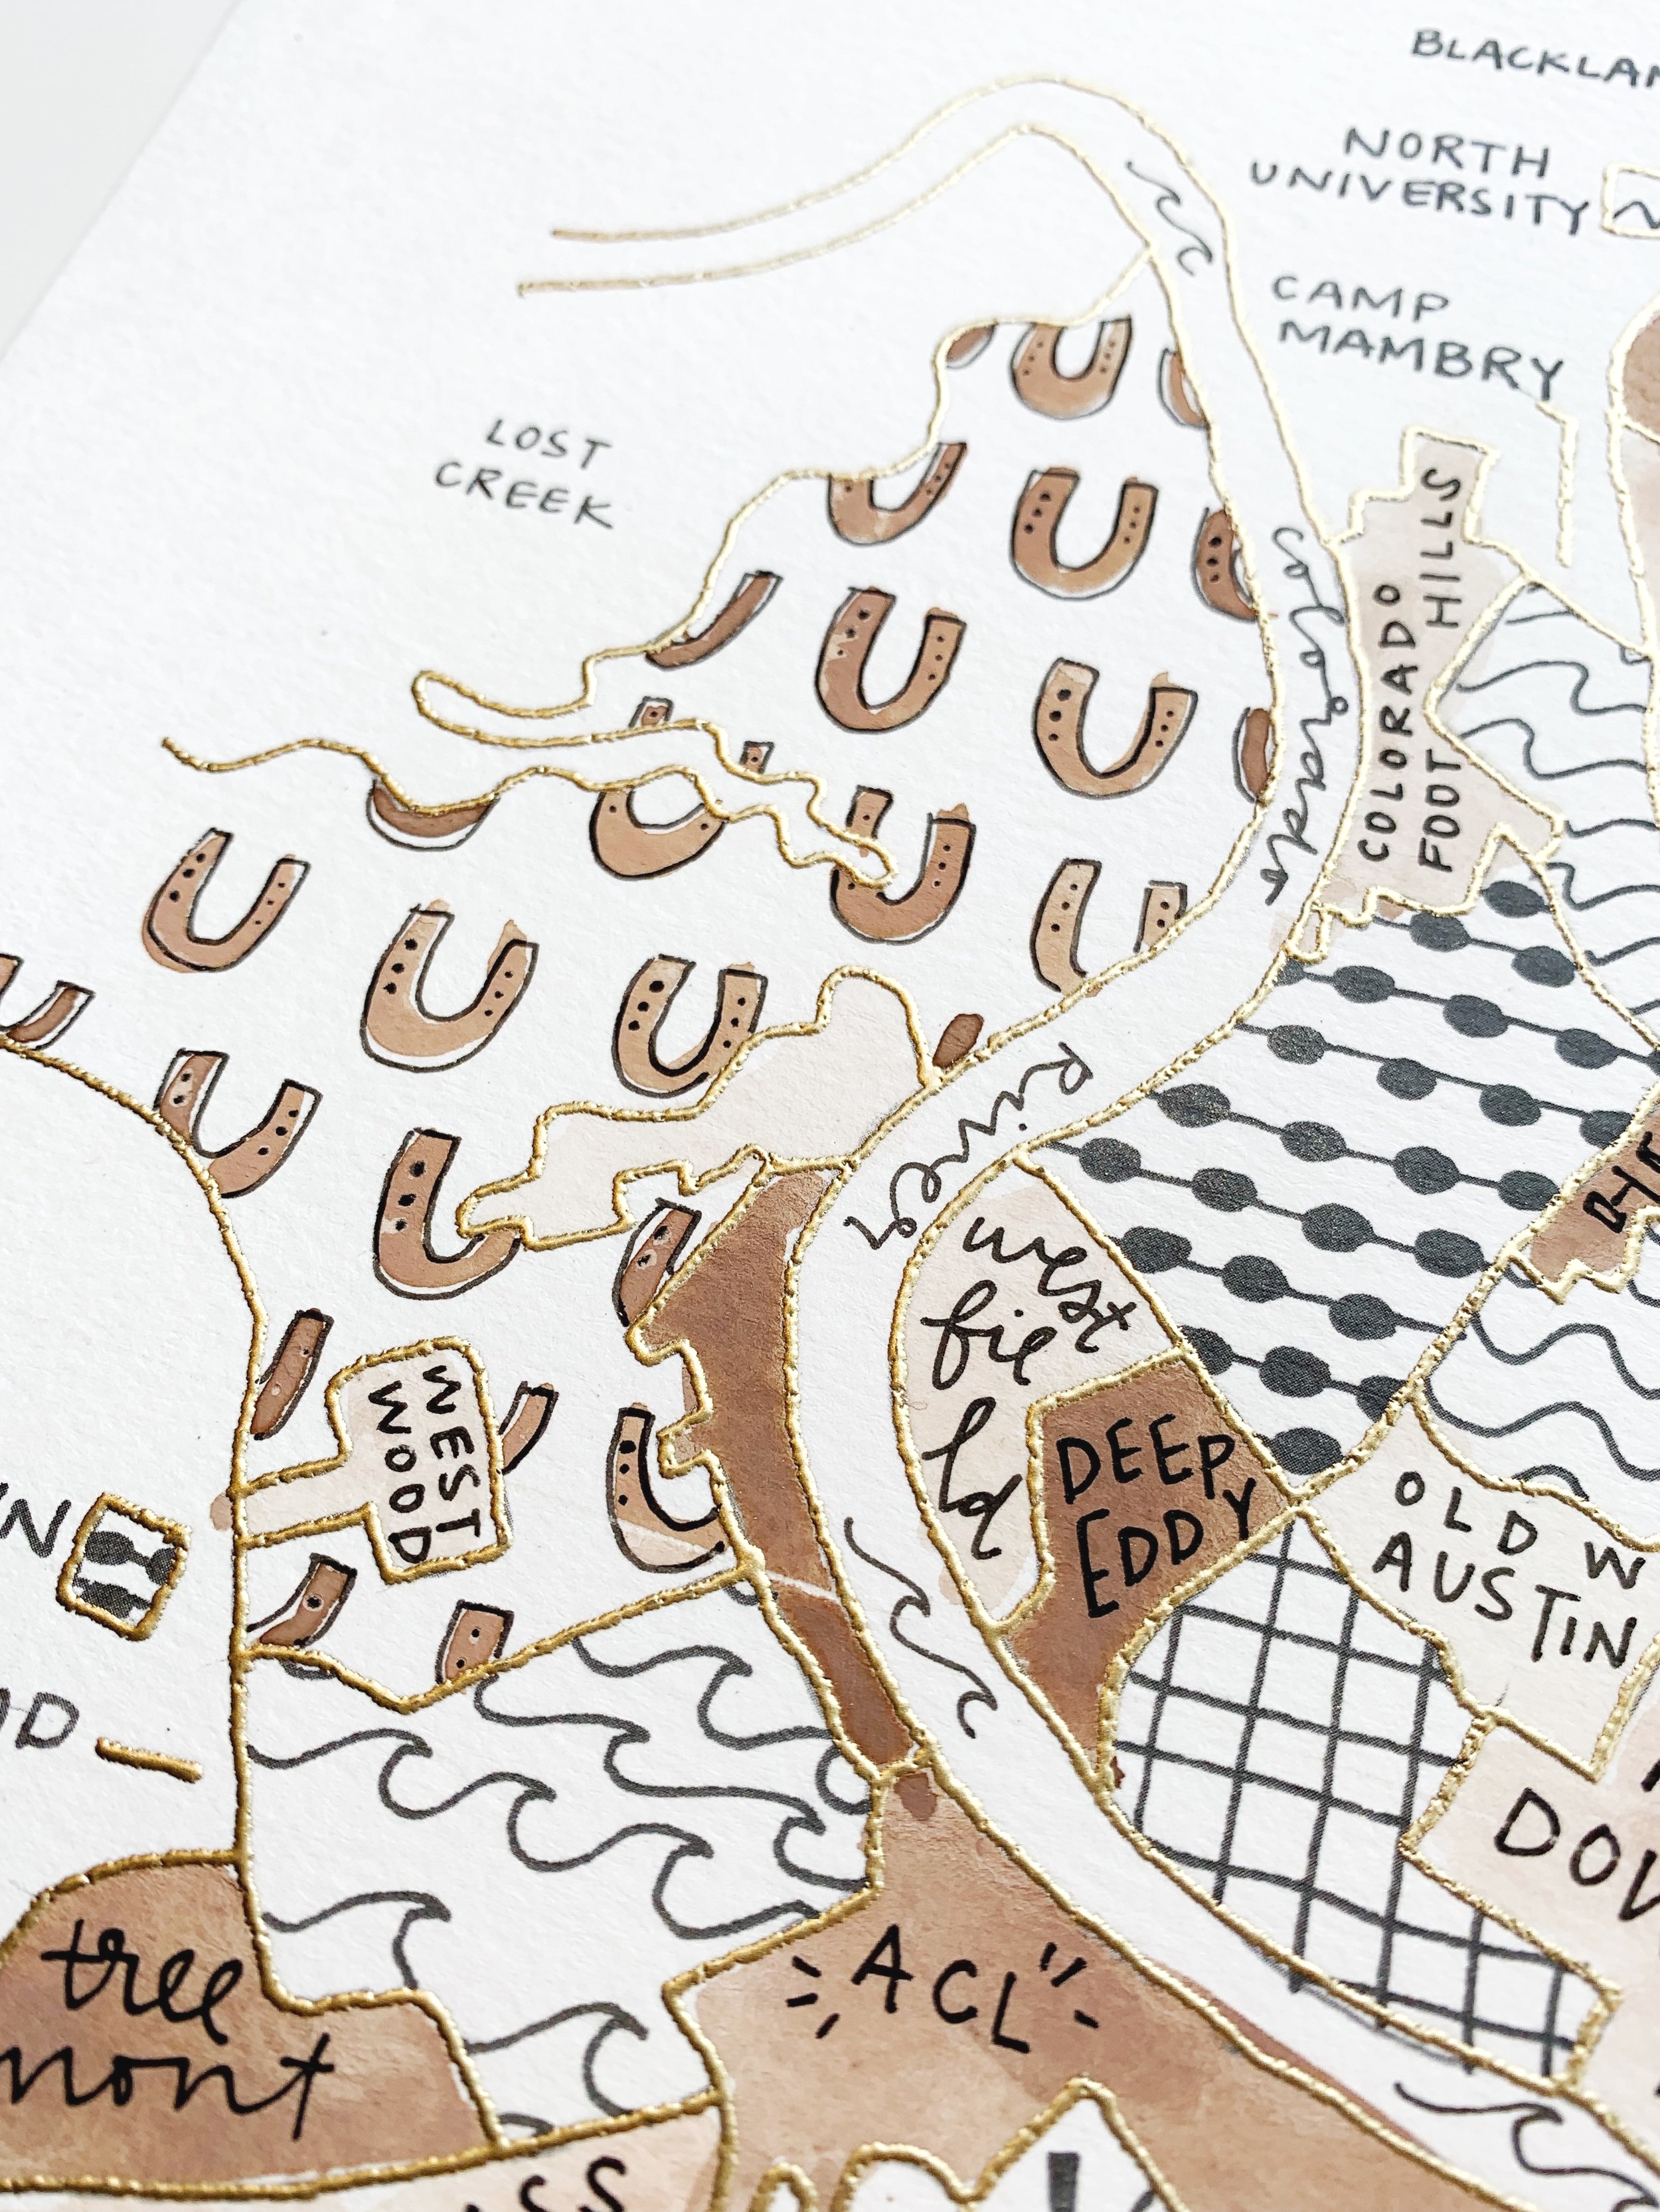 BLACKLAN
NORTH
UNIVERSITY
CAMP
MAMBRY
LOST
CREEK
COLORADO
FOOT HILLS
colorado
River
west
fie
ld
DEEP
EDDY
WEST
WOOD
OLD W
AUSTIN
DOW
ACL
tree
mont